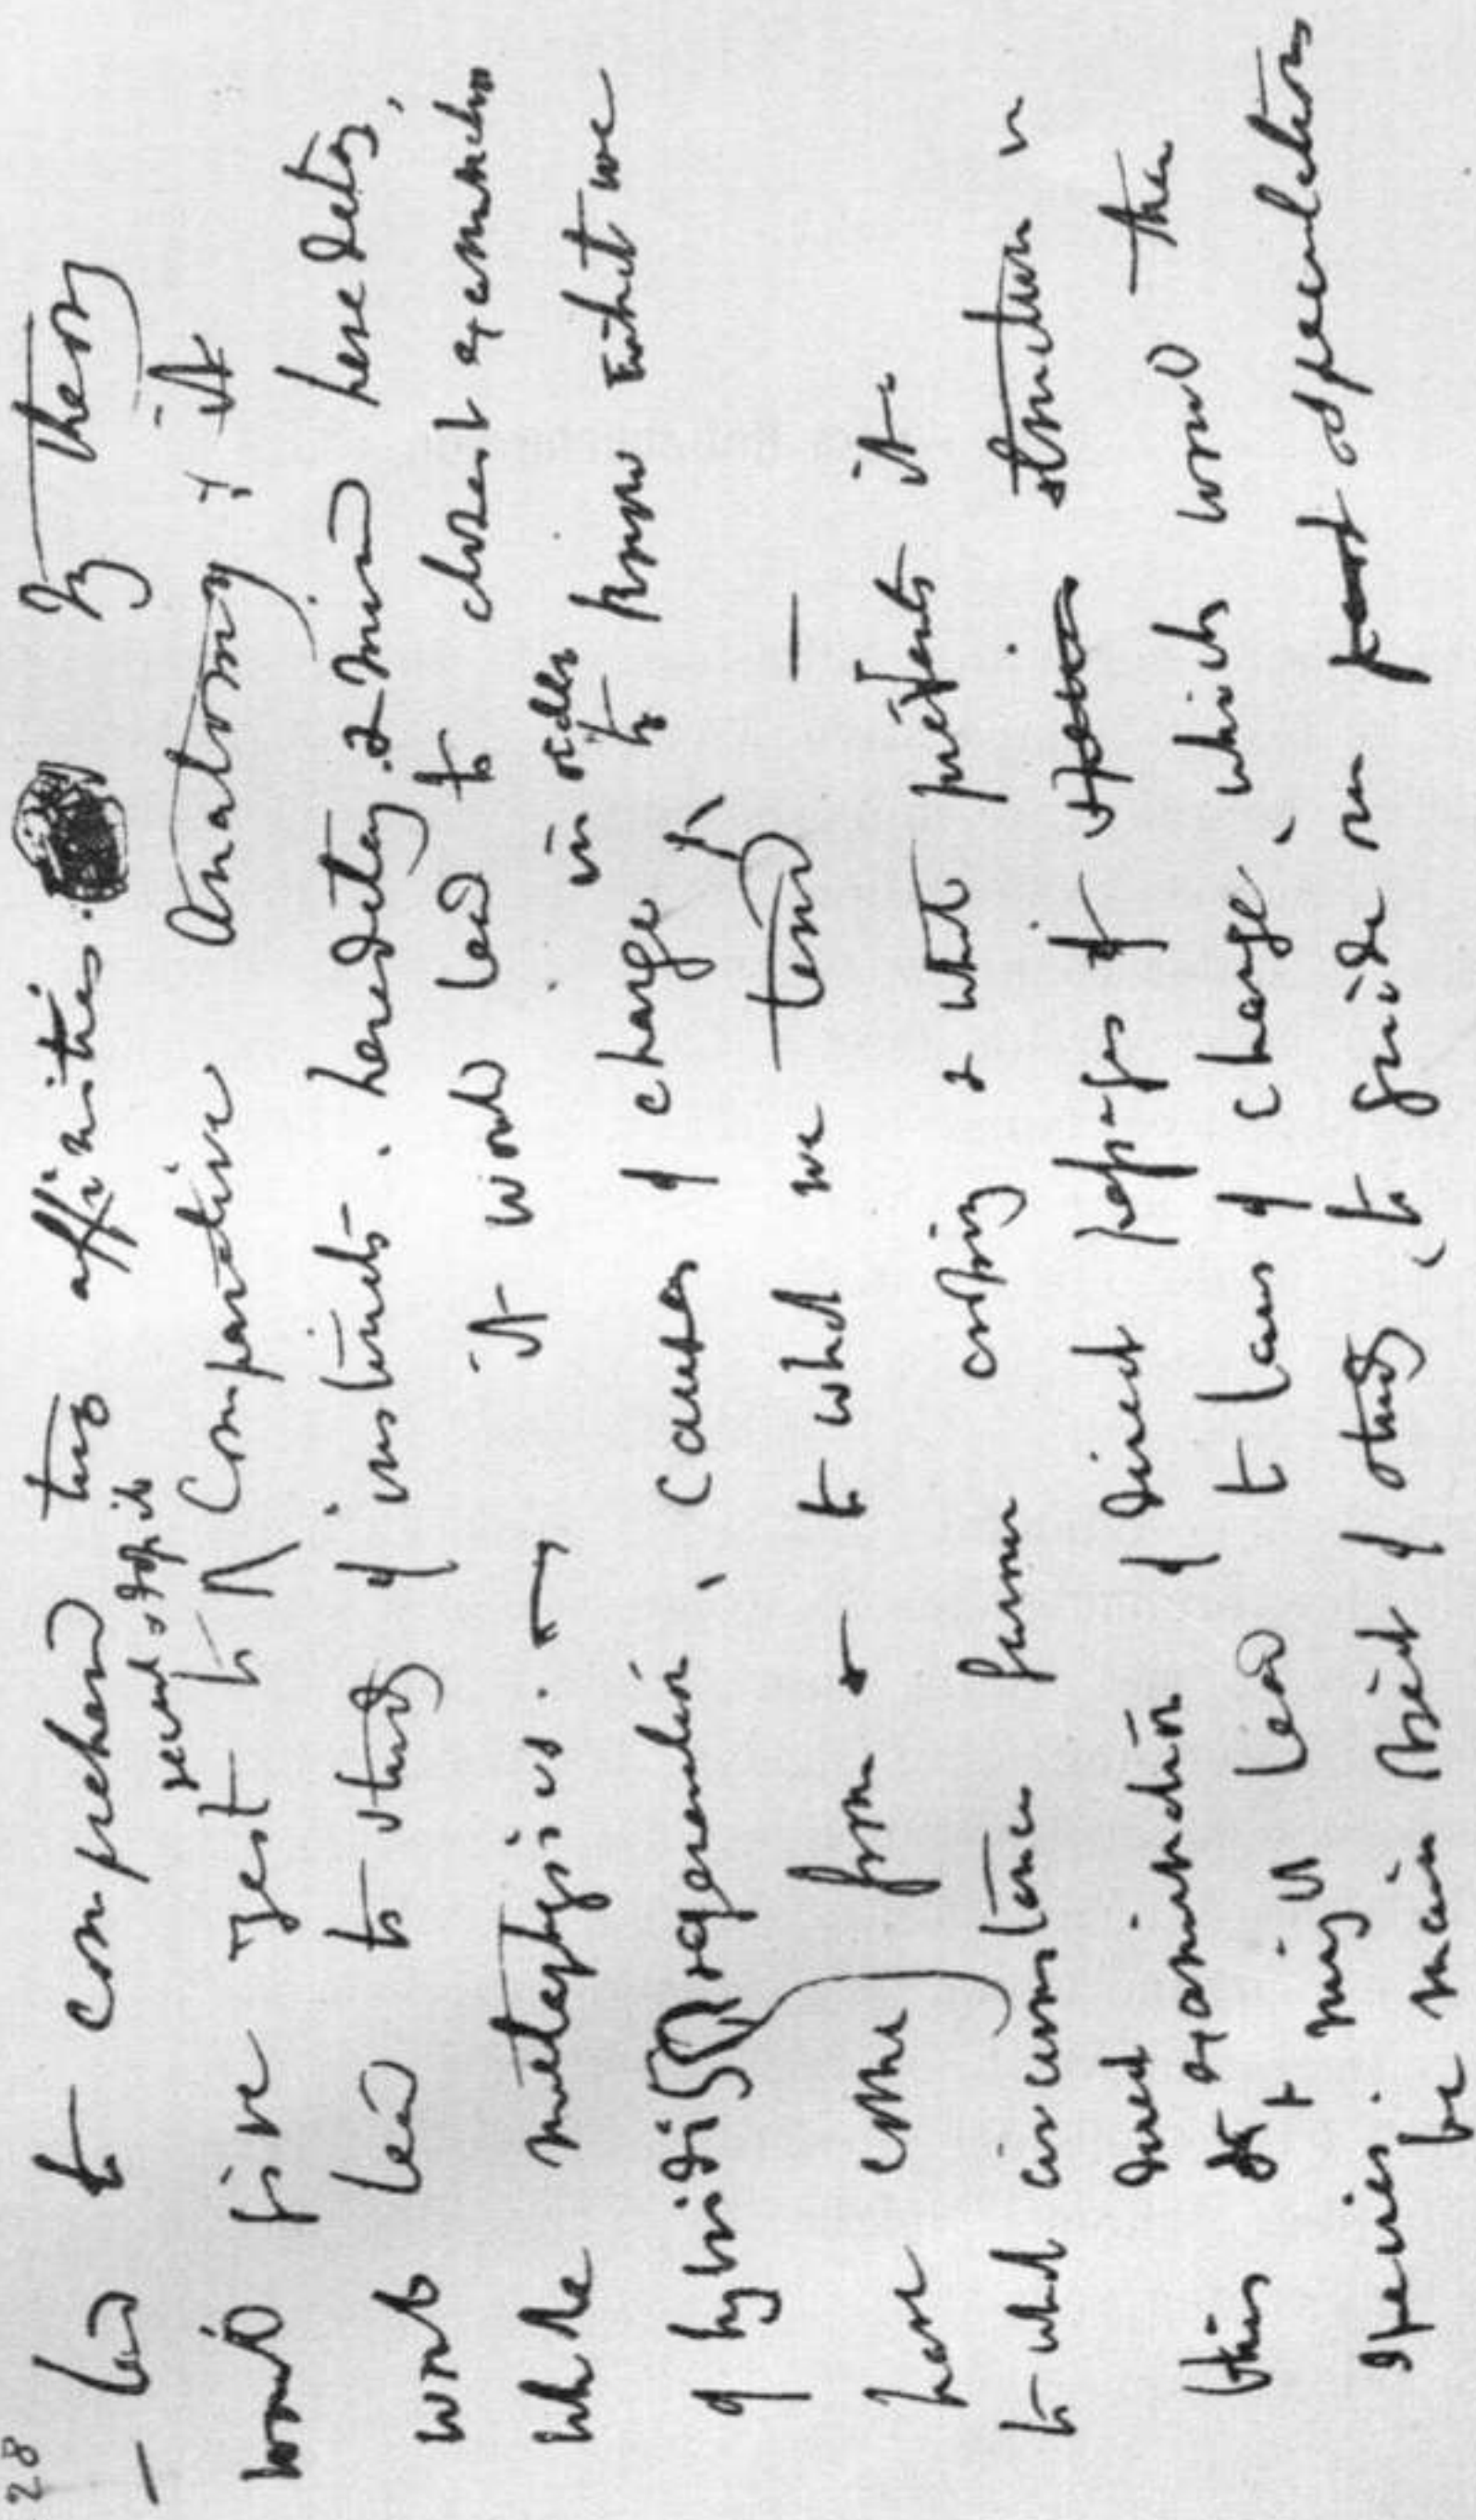 28
– led to comprehend true affinities. My theory
would give zest to recent & Fossil Comparative Anatomy; it
would lead to study of instincts, heredity, & mind heredity,
whole metaphysics. – it would lead to closest examination
of hybridity & generation, causes of change in order to know what we
have come from & to what we tend –
to what circumstances favour crossing & what prevents it –
this & direct examination of direct passages of species structure in
species, might lead to laws of change, which would then
be main object of study, to guide our past speculations